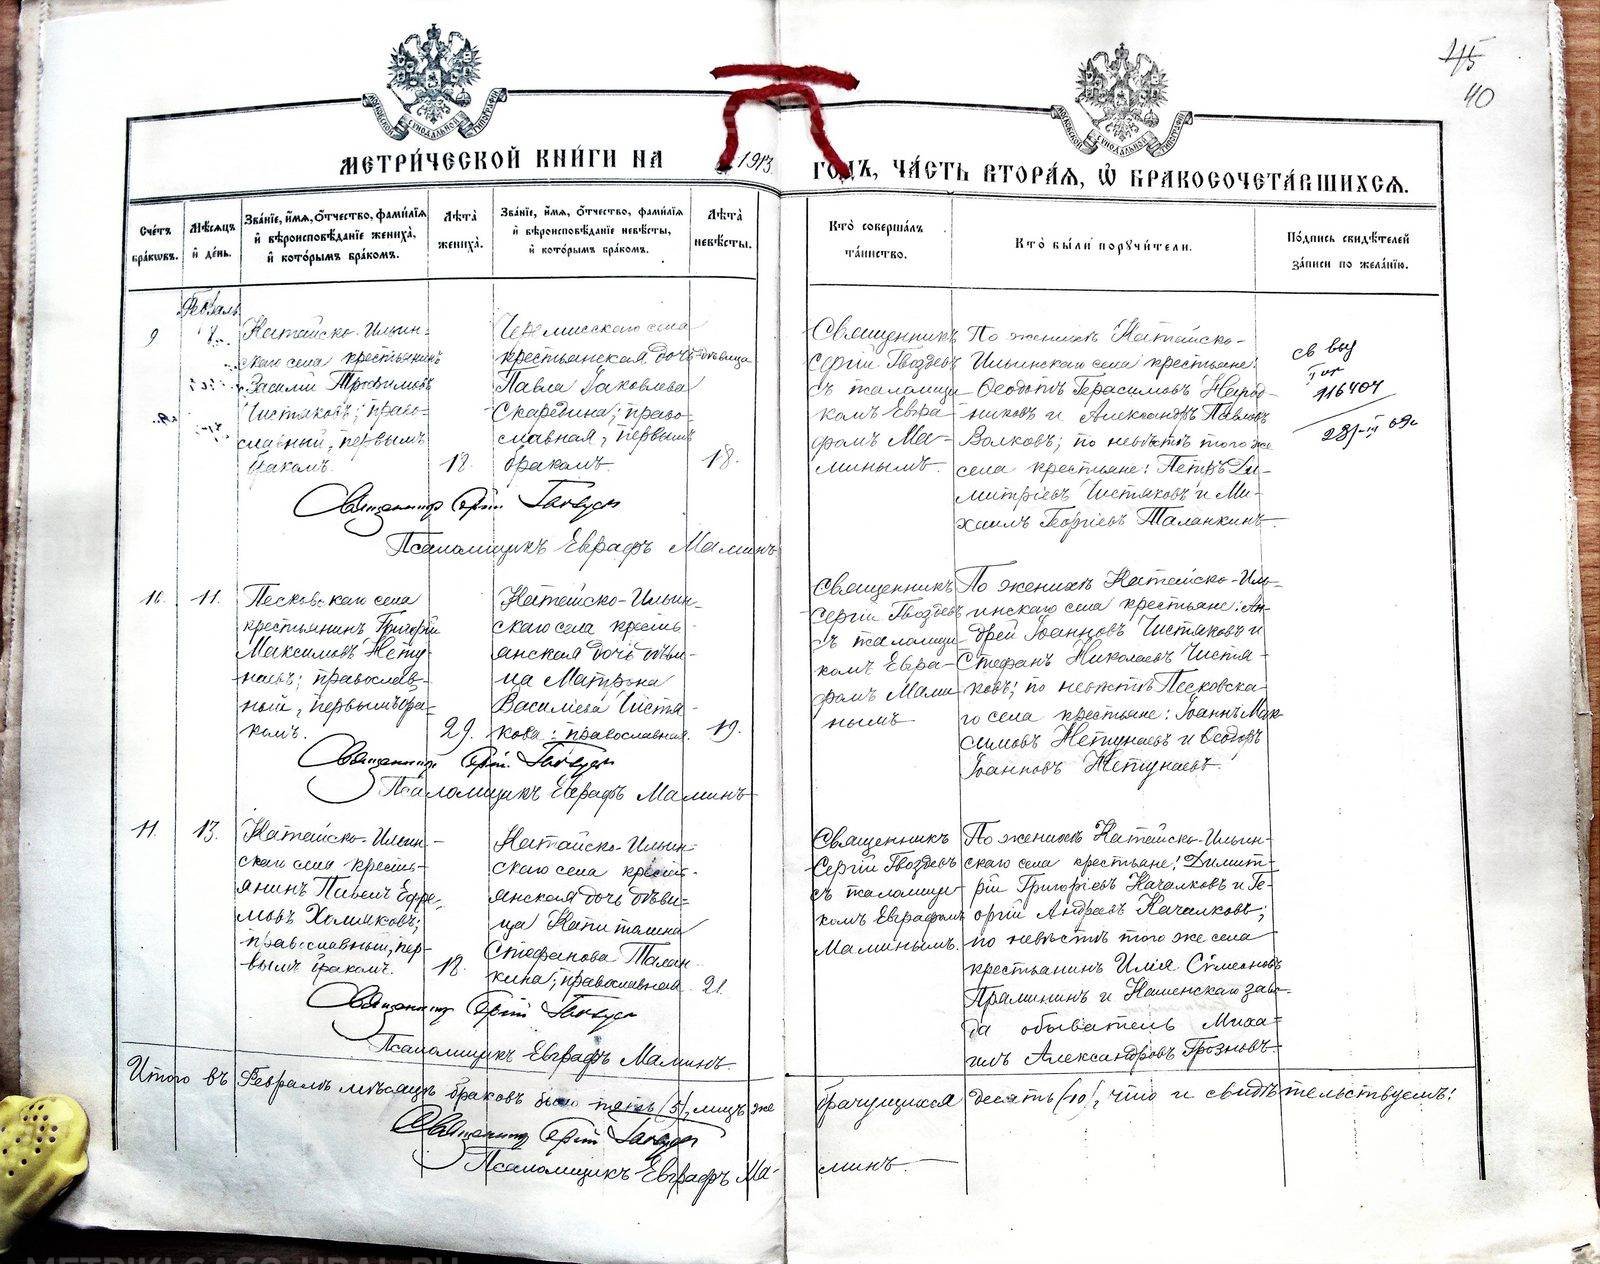 45
40
МОСКОВСКОЙ СѴНОДАЛЬНОЙ ТИПОГРАФІИ
МОСКОВСКОЙ СѴНОДАЛЬНОЙ ТИПОГРАФІИ
МЕТРИ́ЧЕСКОЙ КНИ́ГИ НА 1913 ГОДЪ, ЧА́СТЬ ВТОРА́Я, Ѡ БРАКОСОЧЕТА́ВШИХСЯ.
Сче́тъ бра́кѡвъ.
Мѣ́сяцъ и҆ де́нь.
Зва́нїе, и҆́мя, ѻ҆́тчество, фами́лїя и҆ вѣроисповѣ́данїе жениха̀, и҆ кото́рымъ бра́комъ.
Лѣ́та̀ жениха̀.
Зва́нїе, и҆́мя, ѻ҆́тчество, фами́лїя и҆ вѣроисповѣ́данїе невѣ́сты, и҆ кото́рымъ бра́комъ.
Лѣ́та̀ невѣ́сты.
Кто̀ соверша́лъ та́инство.
Кто̀ бы́ли порꙋчи́тели.
По́дпись свидѣ́телей за́писи по жела́нїю.
Февраль
9
8
Катайско-Ильин-
скаго села крестьянинъ
Василій Трофимовъ
Чистяковъ; право-
славный, первымъ
бракомъ.
18.
Черемисскаго села
крестьянская дочь девица
Павла Іаковлева
Скаредина; право-
славная, первымъ
бракомъ.
18.
Священникъ
Сергій Гвоздевъ
съ псаломщи-
комъ Евгра-
фомъ Ма-
минымъ.
По женихѣ Катайско-
Ильинскаго села крестьяне:
Ѳеодотъ Герасимовъ
никовъ и Александръ Павловъ
Волковъ; по невѣстѣ того же
села крестьяне: Петръ Ди-
митріевъ Чистяковъ и Ми-
хаилъ Георгіевъ Таланкинъ.
св выд
116404
Священникъ Сергій Гвоздевъ
Псаломщикъ Евграфъ Маминъ
10.
11.
Песковскаго села
крестьянинъ Григорій
Максимовъ Нету-
наевъ; православ-
ный, первымъ бра-
комъ.
29.
Катайско-Ильин-
скаго села кресть-
янская дочь дѣви-
ца Матрона
Василіева Чистя-
кова; православная.
19.
Священникъ
Сергій Гвоздевъ
съ псаломщи-
комъ Евгра-
фомъ Мами-
нымъ
По женихѣ Катайско-Иль-
инскаго села крестьяне: Ан-
дрей Іоанновъ Чистяковъ и
Стефанъ Николаевъ Чистя-
ковъ; по невѣстѣ Песковска-
го села крестьяне: Іоаннъ Мак-
симовъ Нетунаевъ и Ѳеодоръ
Іоанновъ Нетунаевъ.
Священникъ Сергій Гвоздевъ
Псаломщикъ Евграфъ Маминъ
11.
13.
Катайско-Ильин-
скаго села кресть-
янинъ Павелъ Ефре-
мовъ Холмяковъ;
православный, пер-
вымъ бракомъ.
18.
Катайско-Ильин-
скаго села крест-
янская дочь дѣви-
ца Капитолина
Стефанова Талан-
кина; православная
21.
Священникъ
Сергій Гвоздевъ
съ псаломщи-
комъ Евграфомъ
Маминымъ.
По женихѣ Катайско-Ильин-
скаго села крестьяне: Димит-
рій Григоріевъ Качалковъ и Ге-
оргій Андреевъ Качалковъ;
по невѣстѣ того же села
крестьянинъ Илія Сѵмеоновъ
и Каменскаго заво-
да обыватель Миха-
илъ Александровъ Грозновъ.
Священникъ Сергій Гвоздевъ
Псаломщикъ Евграфъ Маминъ.
Итого въ Февралѣ мѣсяцѣ браковъ было пять (5), лицъ же брачущихся десять (10), что и свидѣтельствуемъ:
Священникъ Сергій Гвоздевъ
Псаломщикъ Евграфъ Ма-
минъ.